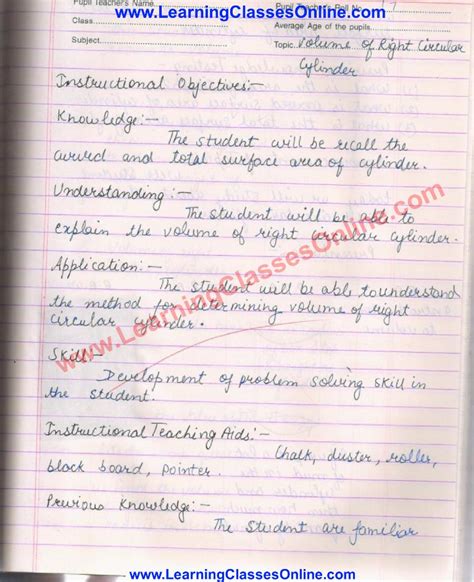 www.LearningClassesOnline.com
Pupil Teacher's Name Pupil Teacher's Roll No.
Class Average Age of the pupils
Subject Topic Volume of Right Circular
Cylinder
Instructional Objectives:-
Knowledge:-
The student will be recall the
curved and total surface area of cylinder.
Understanding:-
The student will be able to
explain the volume of right circular cylinder.
Application:-
The student will be able to understand
the method for determining volume of right
circular cylinder.
Skill:-
Development of problem solving skill in
the student.
Instructional Teaching Aids:-
Chalk, duster, roller,
black board, pointer.
Previous Knowledge:-
The student are familiar
www.LearningClassesOnline.com
www.LearningClassesOnline.com